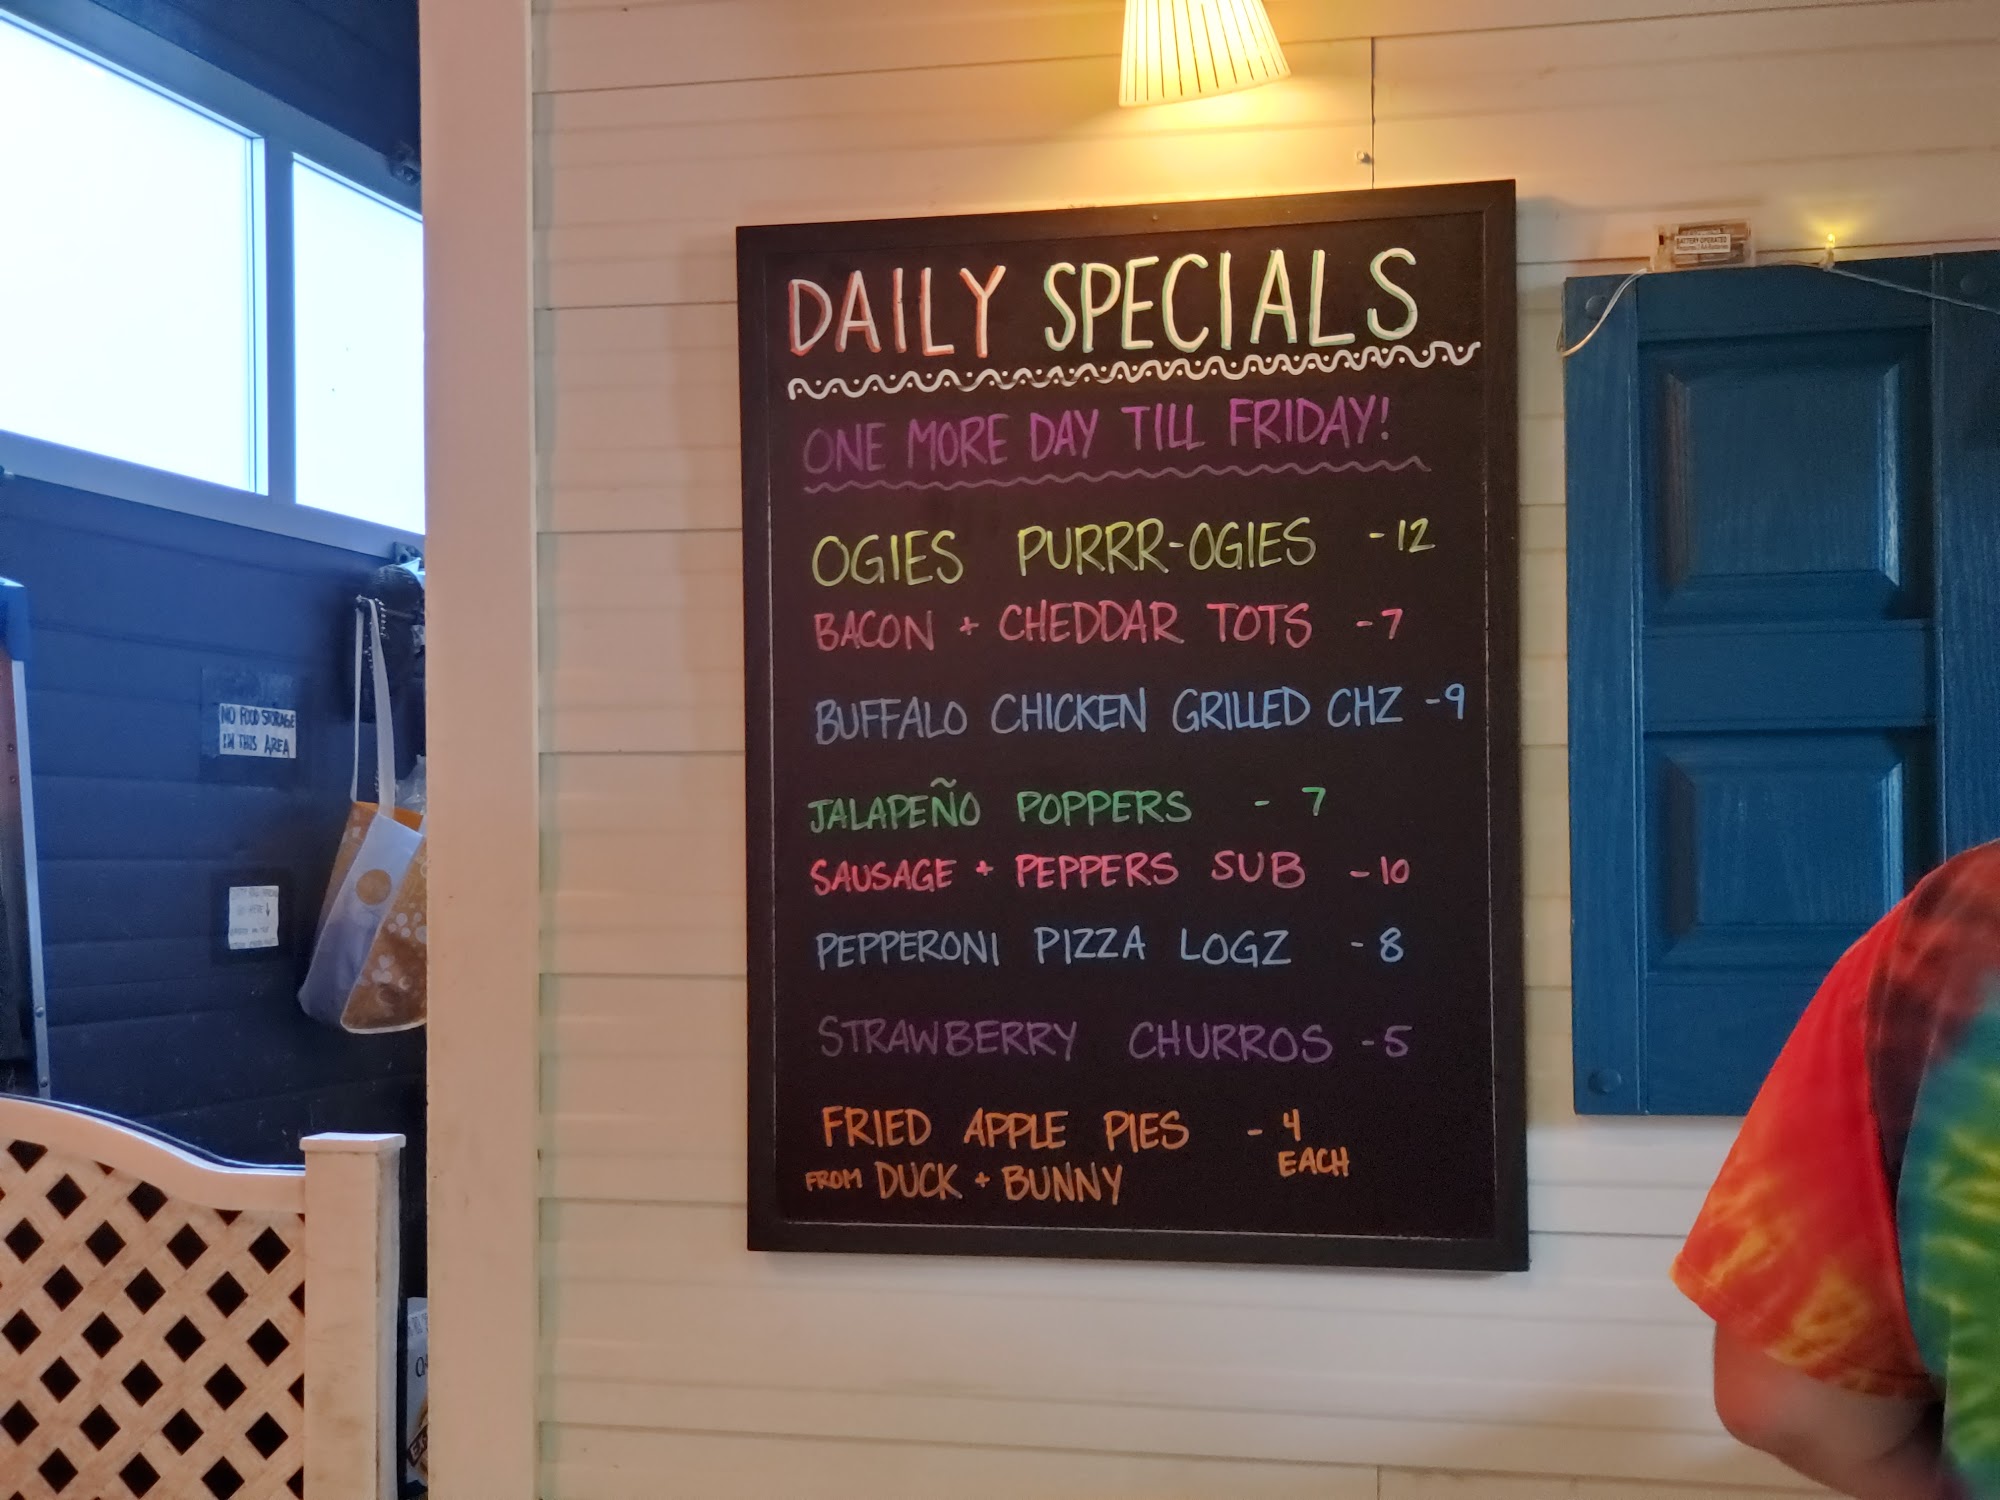 DAILY SPECIALS
ONE MORE DAY TILL FRIDAY!
OGIES PURRR-OGIES - 12
BACON + CHEDDAR TOTS - 7
BUFFALO CHICKEN GRILLED CHZ - 9
JALAPEÑO POPPERS - 7
SAUSAGE + PEPPERS SUB - 10
PEPPERONI PIZZA LOGZ - 8
STRAWBERRY CHURROS - 5
FRIED APPLE PIES - 4
EACH
FROM DUCK + BUNNY
NO FOOD STORAGE
IN THIS AREA
BATTERY OPERATED